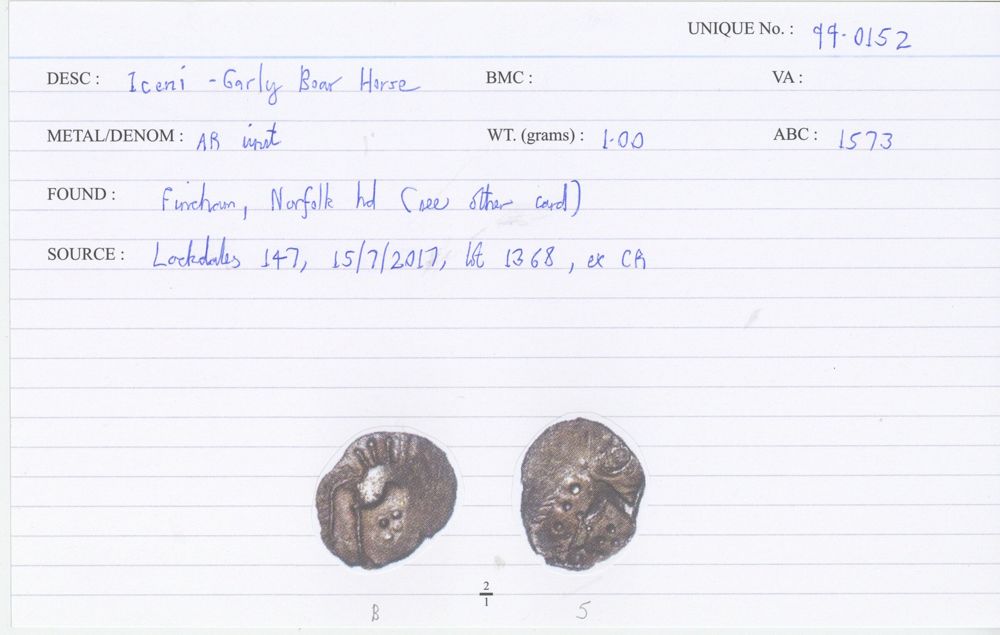 UNIQUE No. : 99-0152
DESC : Iceni - Early Boar Horse BMC : VA :
METAL/DENOM : AR unit WT. (grams) : 1.00 ABC : 1573
FOUND : Fincham, Norfolk hd (see other card)
SOURCE : Lockdales 147, 15/7/2017, lot 1368, ex CR
2
1
B 5